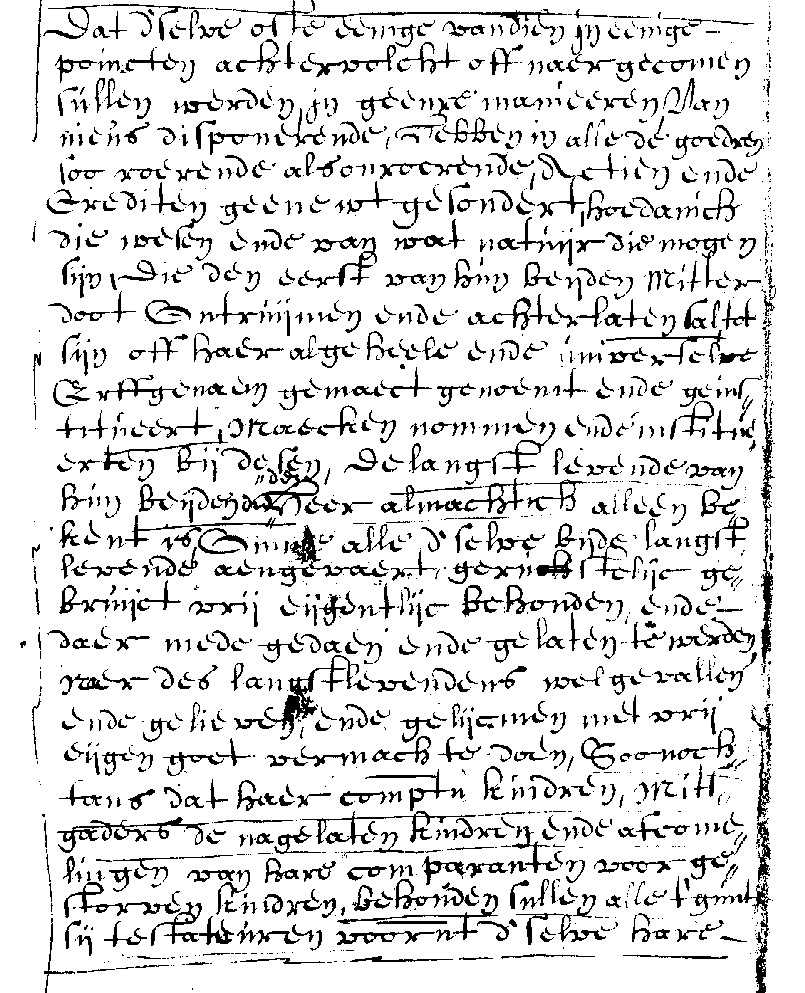 Dat d'selve ofte eenige van dien in eenige
poincten achtervolcht off naergecomen
sullen werden, in geenre manieeren, Van
nieus disponerende, Hebben in alle de goedren
soo roerende als onroerende, Actien ende
Crediten geene uutgesondert, hoedanich
die wesen ende van wat natuijr die mogen
sijn, Die den eerst van hun beijden Mitter
doot Ontruijmen ende achterlaten sal tot
sijn off haer algeheele ende universelve
Erffgenaem gemaect genoemt ende geins„
titueert, Maecken nommen ende institue„
erten bij desen, De langst levende van
hun beijden den Heer almachtich alleen be„
kent is, Omme alle d'selve bijde langst
levende aengevaert, gerustelijc ge„
bruijct vrij eijgentlijc behouden, ende
daer mede gedaen ende gelaten te werden
naer des langstlevendens welgevallen
ende gelieven, ende gelijcmen met vrij
eijgen goet vermach te doen, Soo noch„
tans dat haer compten kindren, Mits„
gaders de nagelaten kindren ende afcome„
lingen van hare comparanten voor ge„
storven kindren, behouden sullen alle t'gunt
sij testateuren voornt d'selve hare